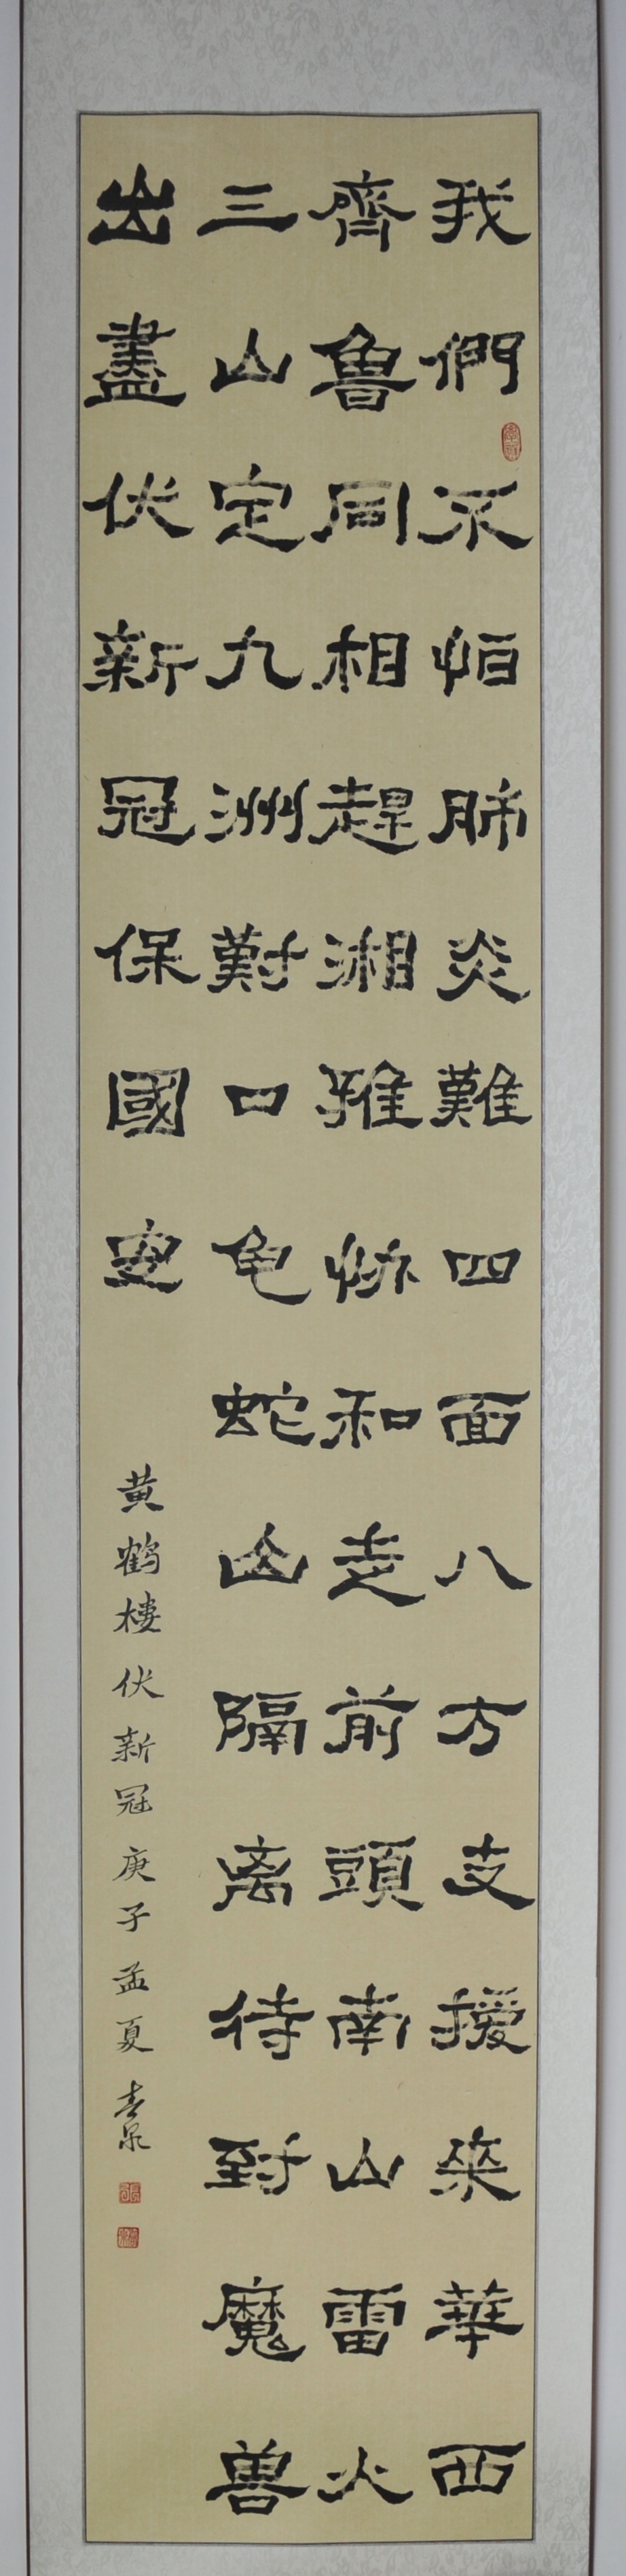 我們不怕肺炎難四面八方支援來華西
齊魯同相趕湘雅協和走前頭南山雷火
三山定九洲對口龟蛇山隔离待到魔兽
出盡伏新冠保國安
黄鹤楼伏新冠庚子孟夏